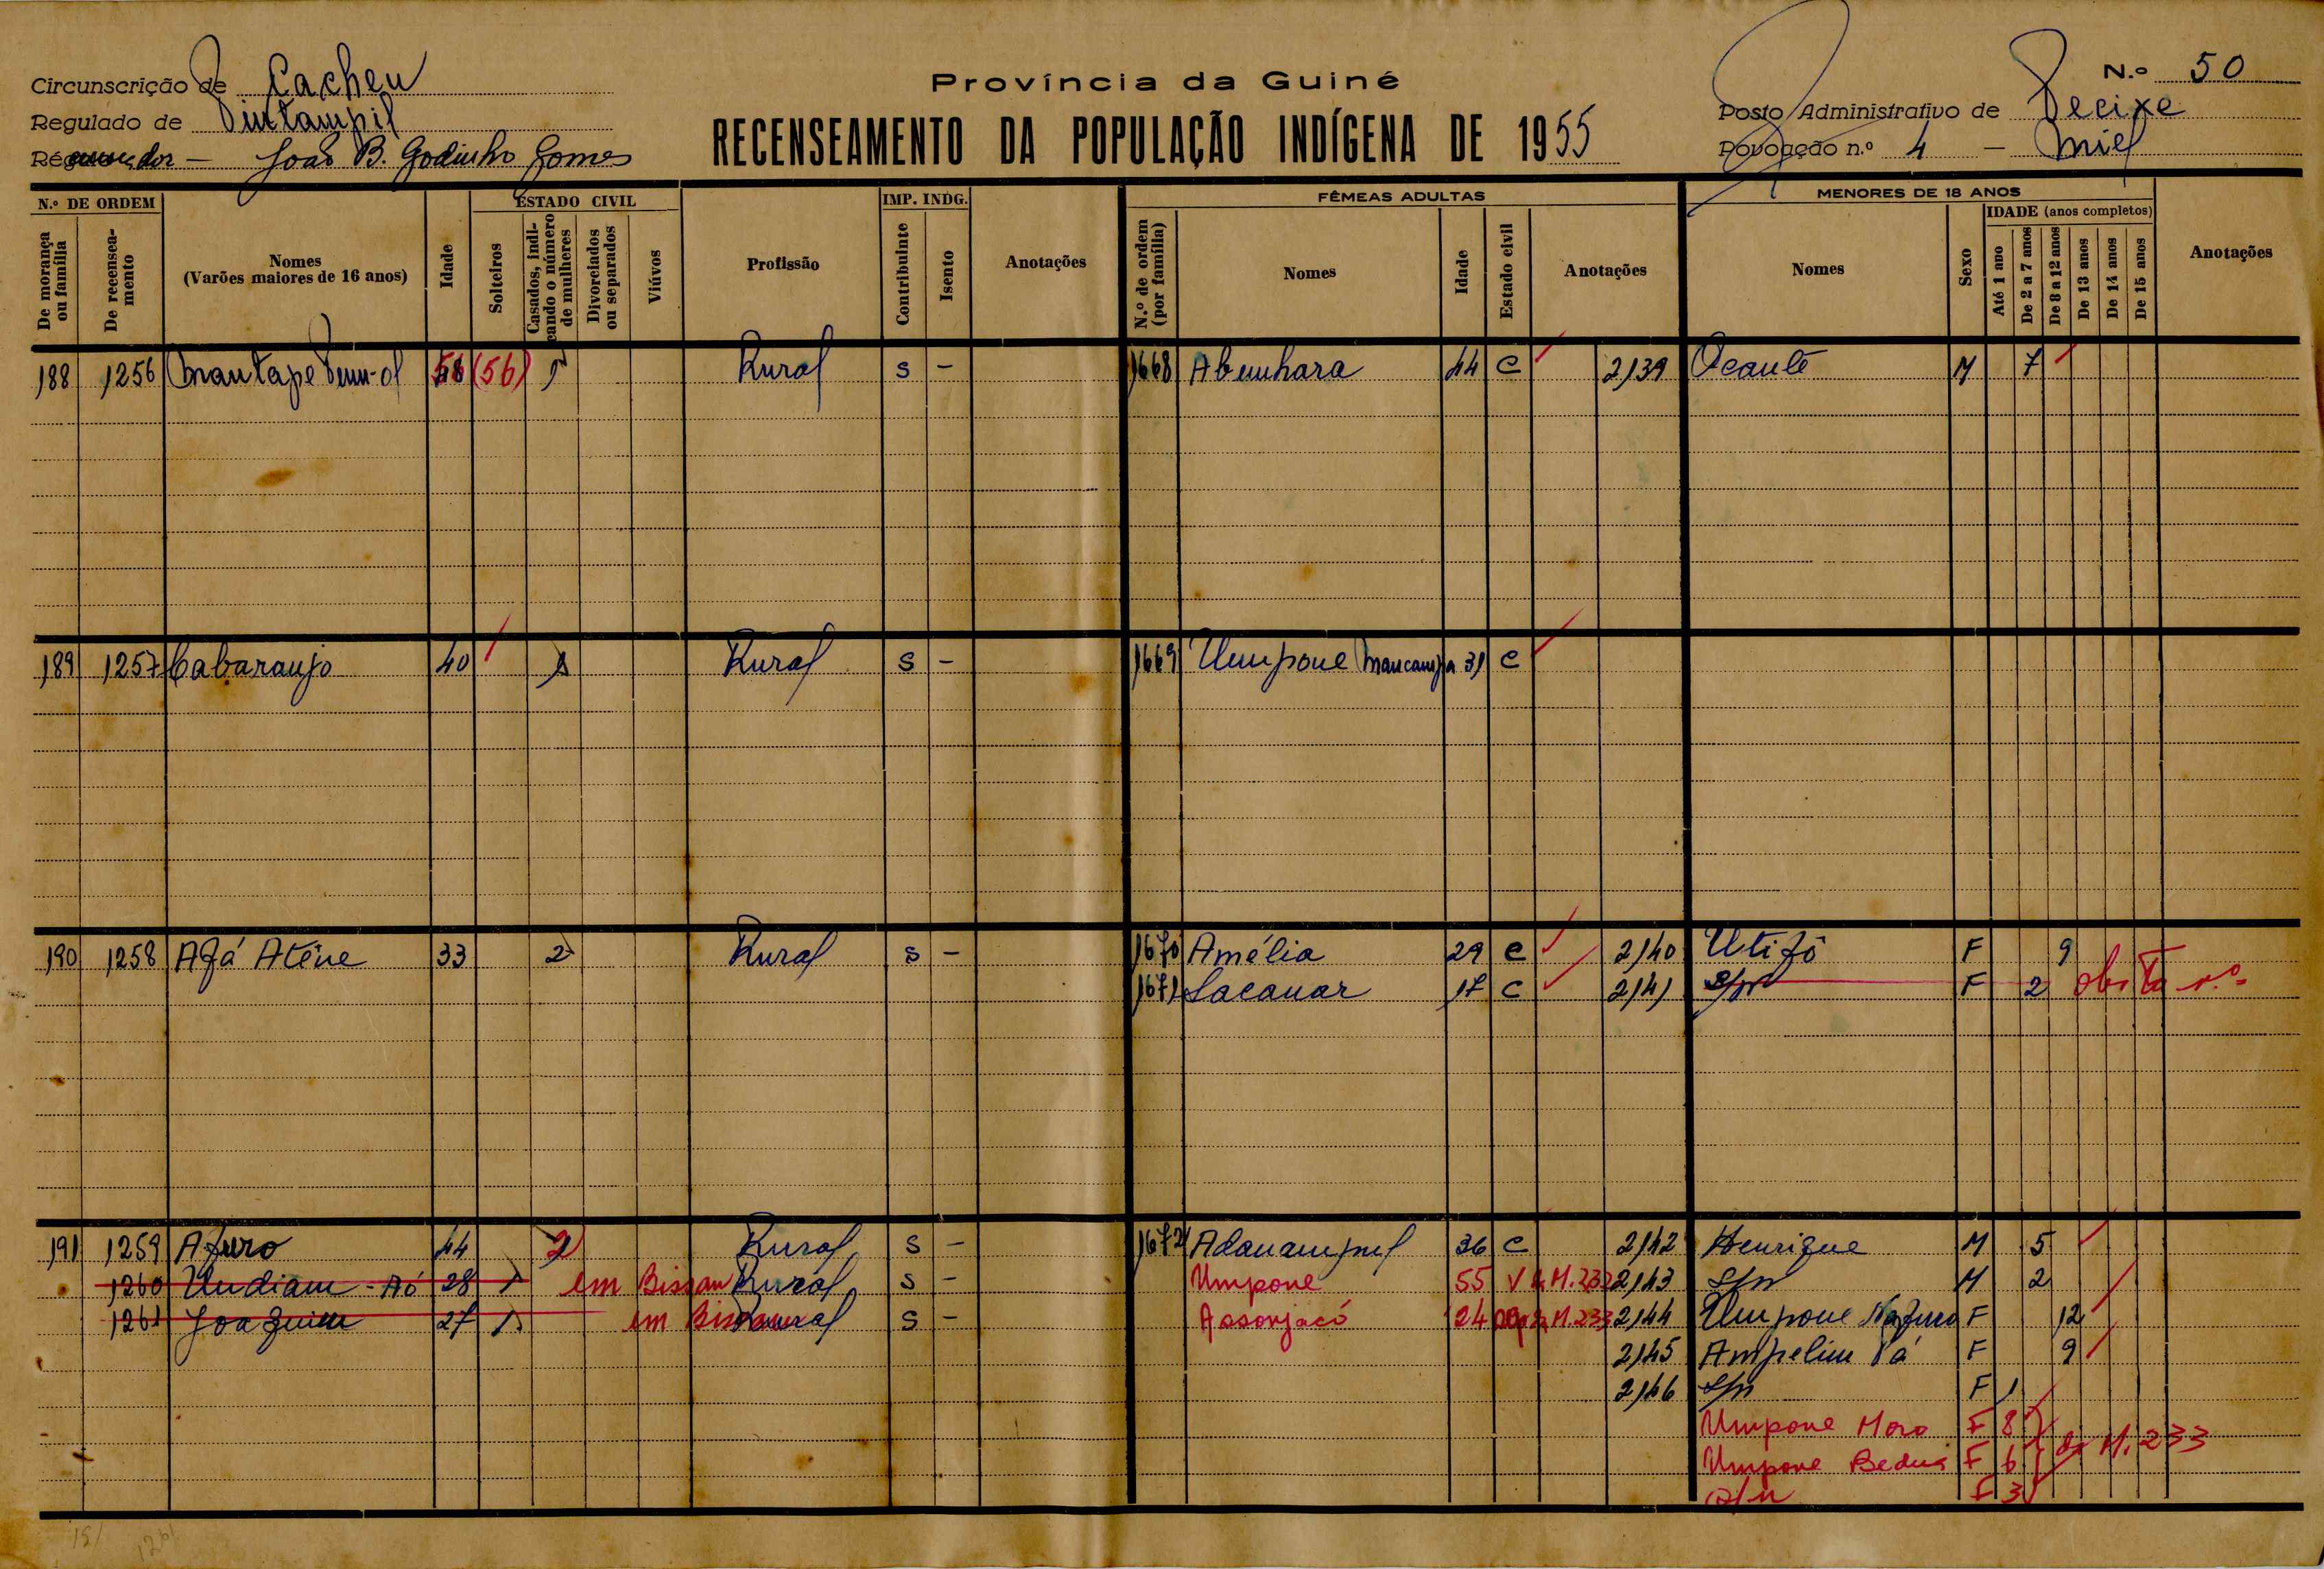 Circunscrição de Cacheu
Província da Guiné
N.º 50
Regulado de Pintampil
RECENSEAMENTO DA POPULAÇÃO INDÍGENA DE 1955
Posto Administrativo de Pecixe
João B. Godinho Gomes
Povoação n.º 4 — Miel
N.º DE ORDEM
De morança ou família
De recenseamento
Nomes
(Varões maiores de 16 anos)
Idade
ESTADO CIVIL
Solteiros
Casados, indicando o número de mulheres
Divorciados ou separados
Viúvos
Profissão
IMP. INDG.
Contribuinte
Isento
Anotações
FÊMEAS ADULTAS
N.º de ordem (por família)
Nomes
Idade
Estado civil
Anotações
MENORES DE 18 ANOS
Nomes
Sexo
IDADE (anos completos)
Até 1 ano
De 2 a 7 anos
De 8 a 12 anos
De 13 anos
De 14 anos
De 15 anos
Anotações
188 1256 (56) 1 Rural S - 1668 Abunhara 44 C 2139 Ocante M 7
189 1257 Cabaraujo 40 1 Rural S - 1669 Umpone Mancampa 31 C
190 1258 Afá Atene 33 2 Rural S - 1670 Amélia 29 C 2140 Utifô F 9
1671 Sacauar 17 C 2141 S/n F 2 obito n.º
191 1259 Afuro 44 2 Rural S - 1672 36 C 2142 Henrique M 5
1260 Undiam-Aó 28 1 em Bissau Rural S - Umpone 55 V M.233 2143 S/n M 2
1261 Joaquim 27 1 em Bissau Rural S - Assonjacó 24 M.233 2144 Umpone Nafuro F 12
2145 Ampelim Pá F 9
2146 S/n F 1
Umpone Moro F 8
Umpone F 6 da M. 233
S/n F 3
151 1261